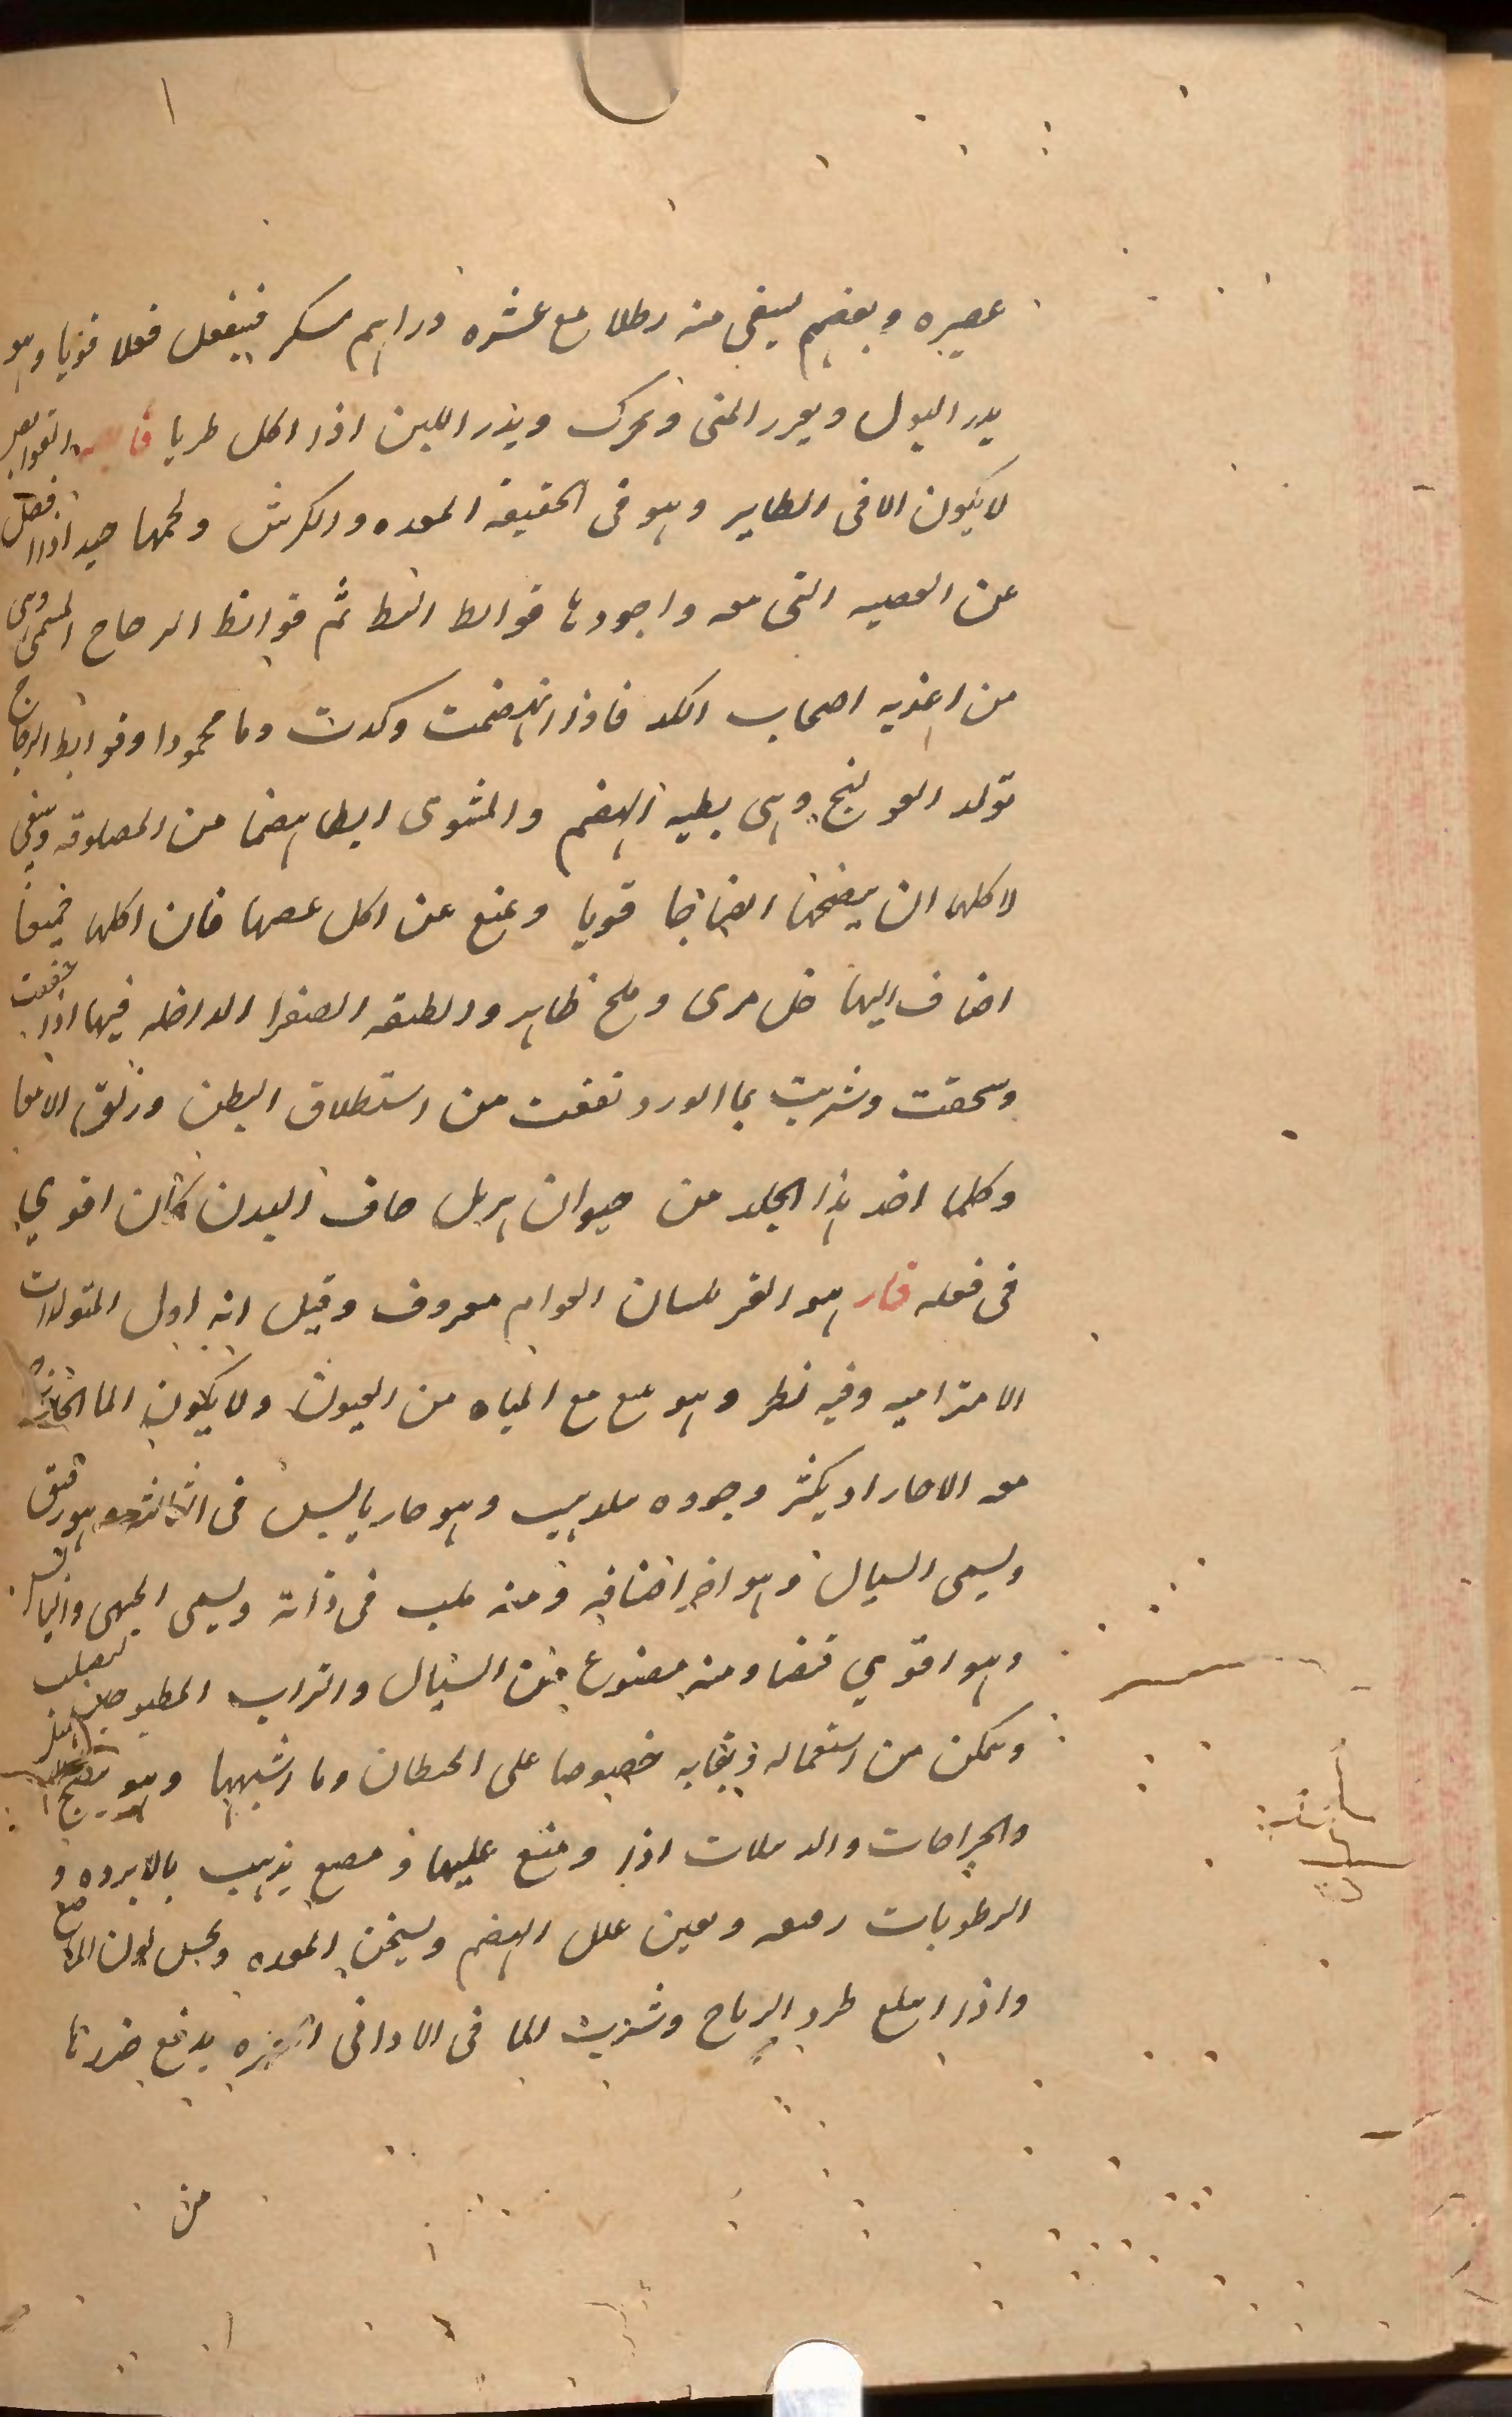 عصيره وبعضهم يسقى منه رطلا مع عشره دراهم سكر فيفعل فعلا قويا وهو
يدر البول ويغزر المنى ويحرك ويدر اللبن اذا اكل طريا
لا يكون الا فى الطاير وهو فى الحقيقه المعده والكرش ولحمها جيد اذا فصل
عن العصبه التى معه واجودها قوانط البط ثم قوانط الدجاج المسمن وهى
من اغذيه اصحاب الكد فاذا انهضمت ولدت دما محمودا وقوانط الدجاج
تولد القولنج وهى بطيه الهضم والمشوى ابطا هضما من المصلوقه وينبغى
لاكلها ان يمضغها انضاجا قويا ويمنع عن اكل عصبها فان اكلها ضعيفا
اضاف اليها خل مرى وملح ظاهر والطبقه الصفرا الداخله فيها اذا جففت
وسحقت وشربت بما الورد نفعت من استطلاق البطن وزلق الامعا
وكلما اخذ هذا الجلد من حيوان هزيل جاف البدن كان اقوي
فى فعله قار هو القر بلسان العوام معروف وقيل انه اول المتولدات
الامتزاجيه وفيه نظر وهو ينبع مع المياه من العيون ولا يكون الما
معه الا حارا ويكثر وجوده وهو حار يابس فى الثالثه وهو رقيق
ويسمى السيال وهو اخر اضافه ومنه صلب فى ذاته ويسمى الجبهى
وهو اقوي قبضا ومنه مصنوع من السيال والتراب المطبوخ ليصلب
ويمكن من استعماله وبقايه خصوصا على الحيطان وما اشبهها وهو
والجراحات والدملات اذا وضع عليها ومضغه يذهب بالابرده و
الرطوبات ويعين على الهضم ويسخن المعده
واذا ابتلع طرد الرياح وشرب الما فى الاوانى يدفع ضررها
من